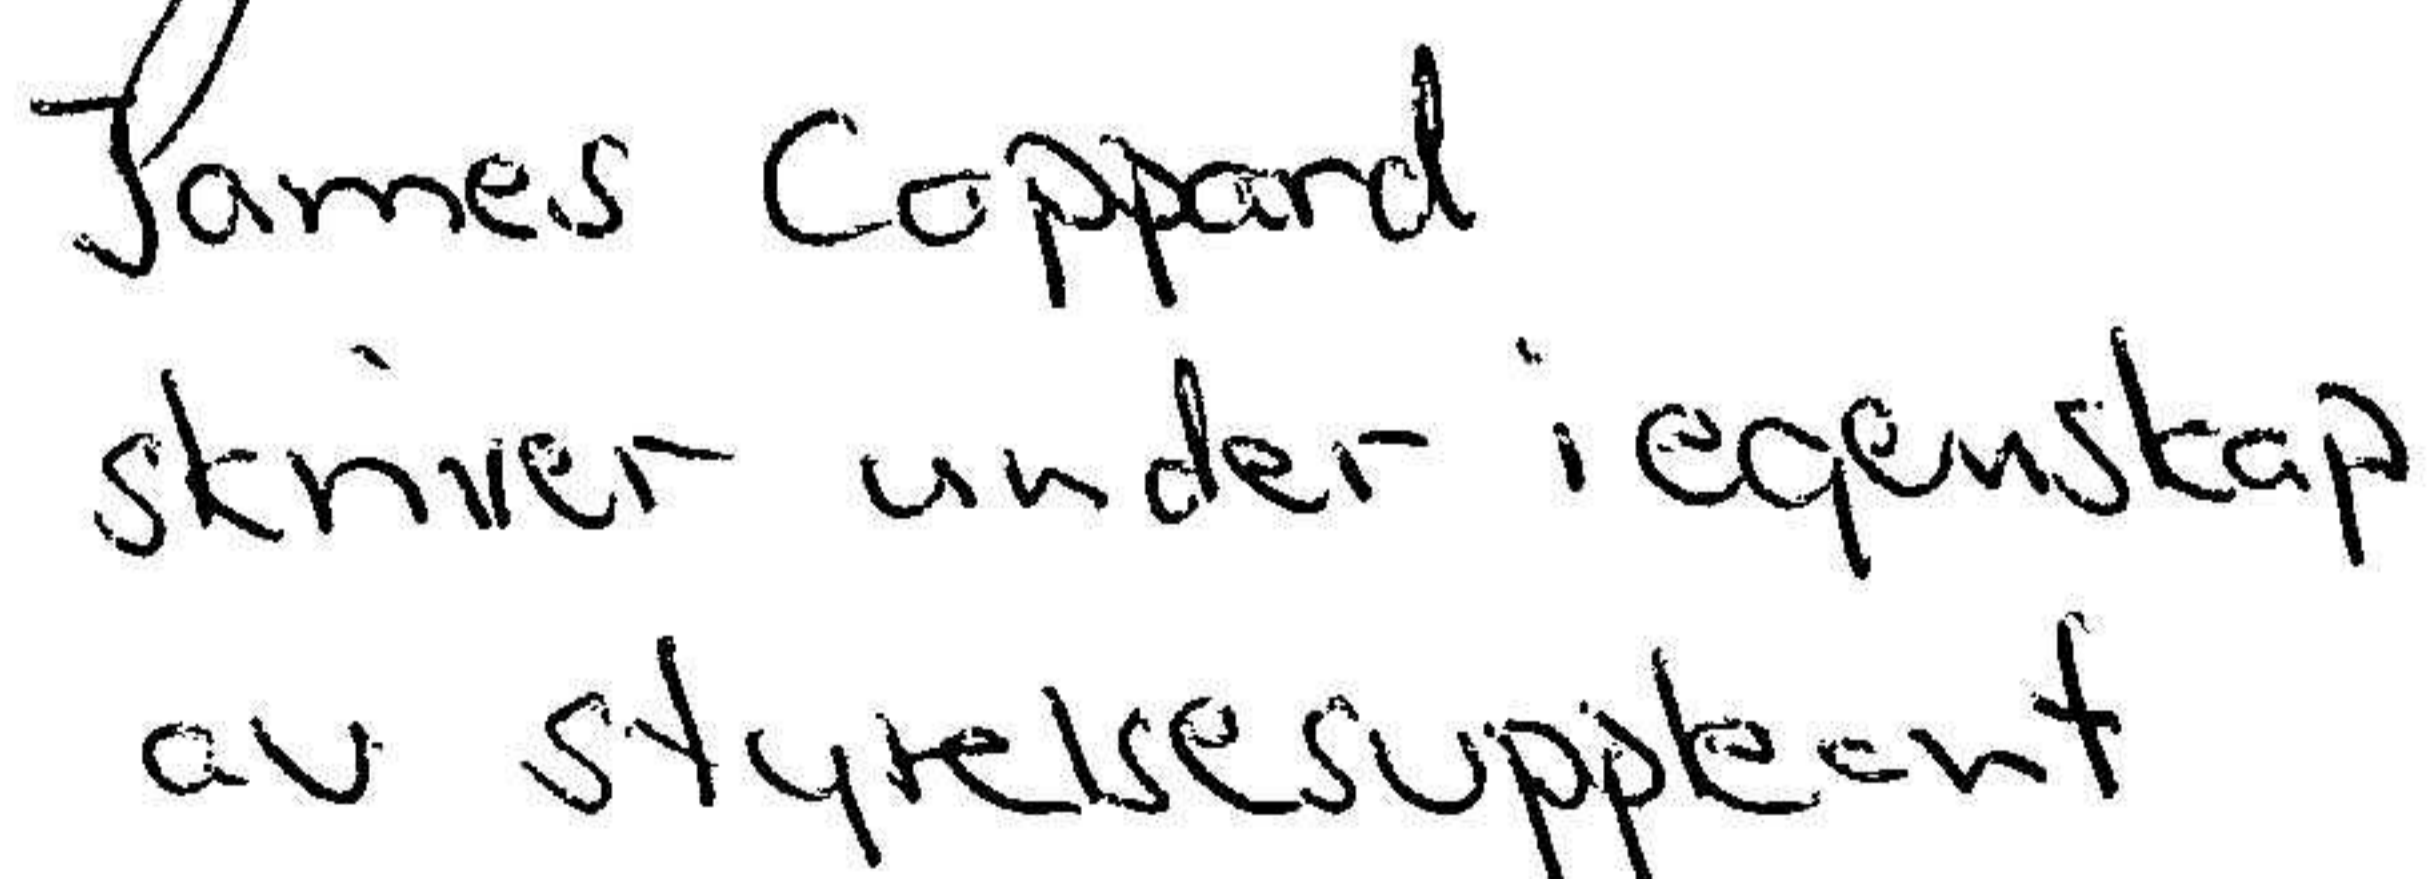 James Coppard
skriver under i egenskap
av styrelsesuppleant